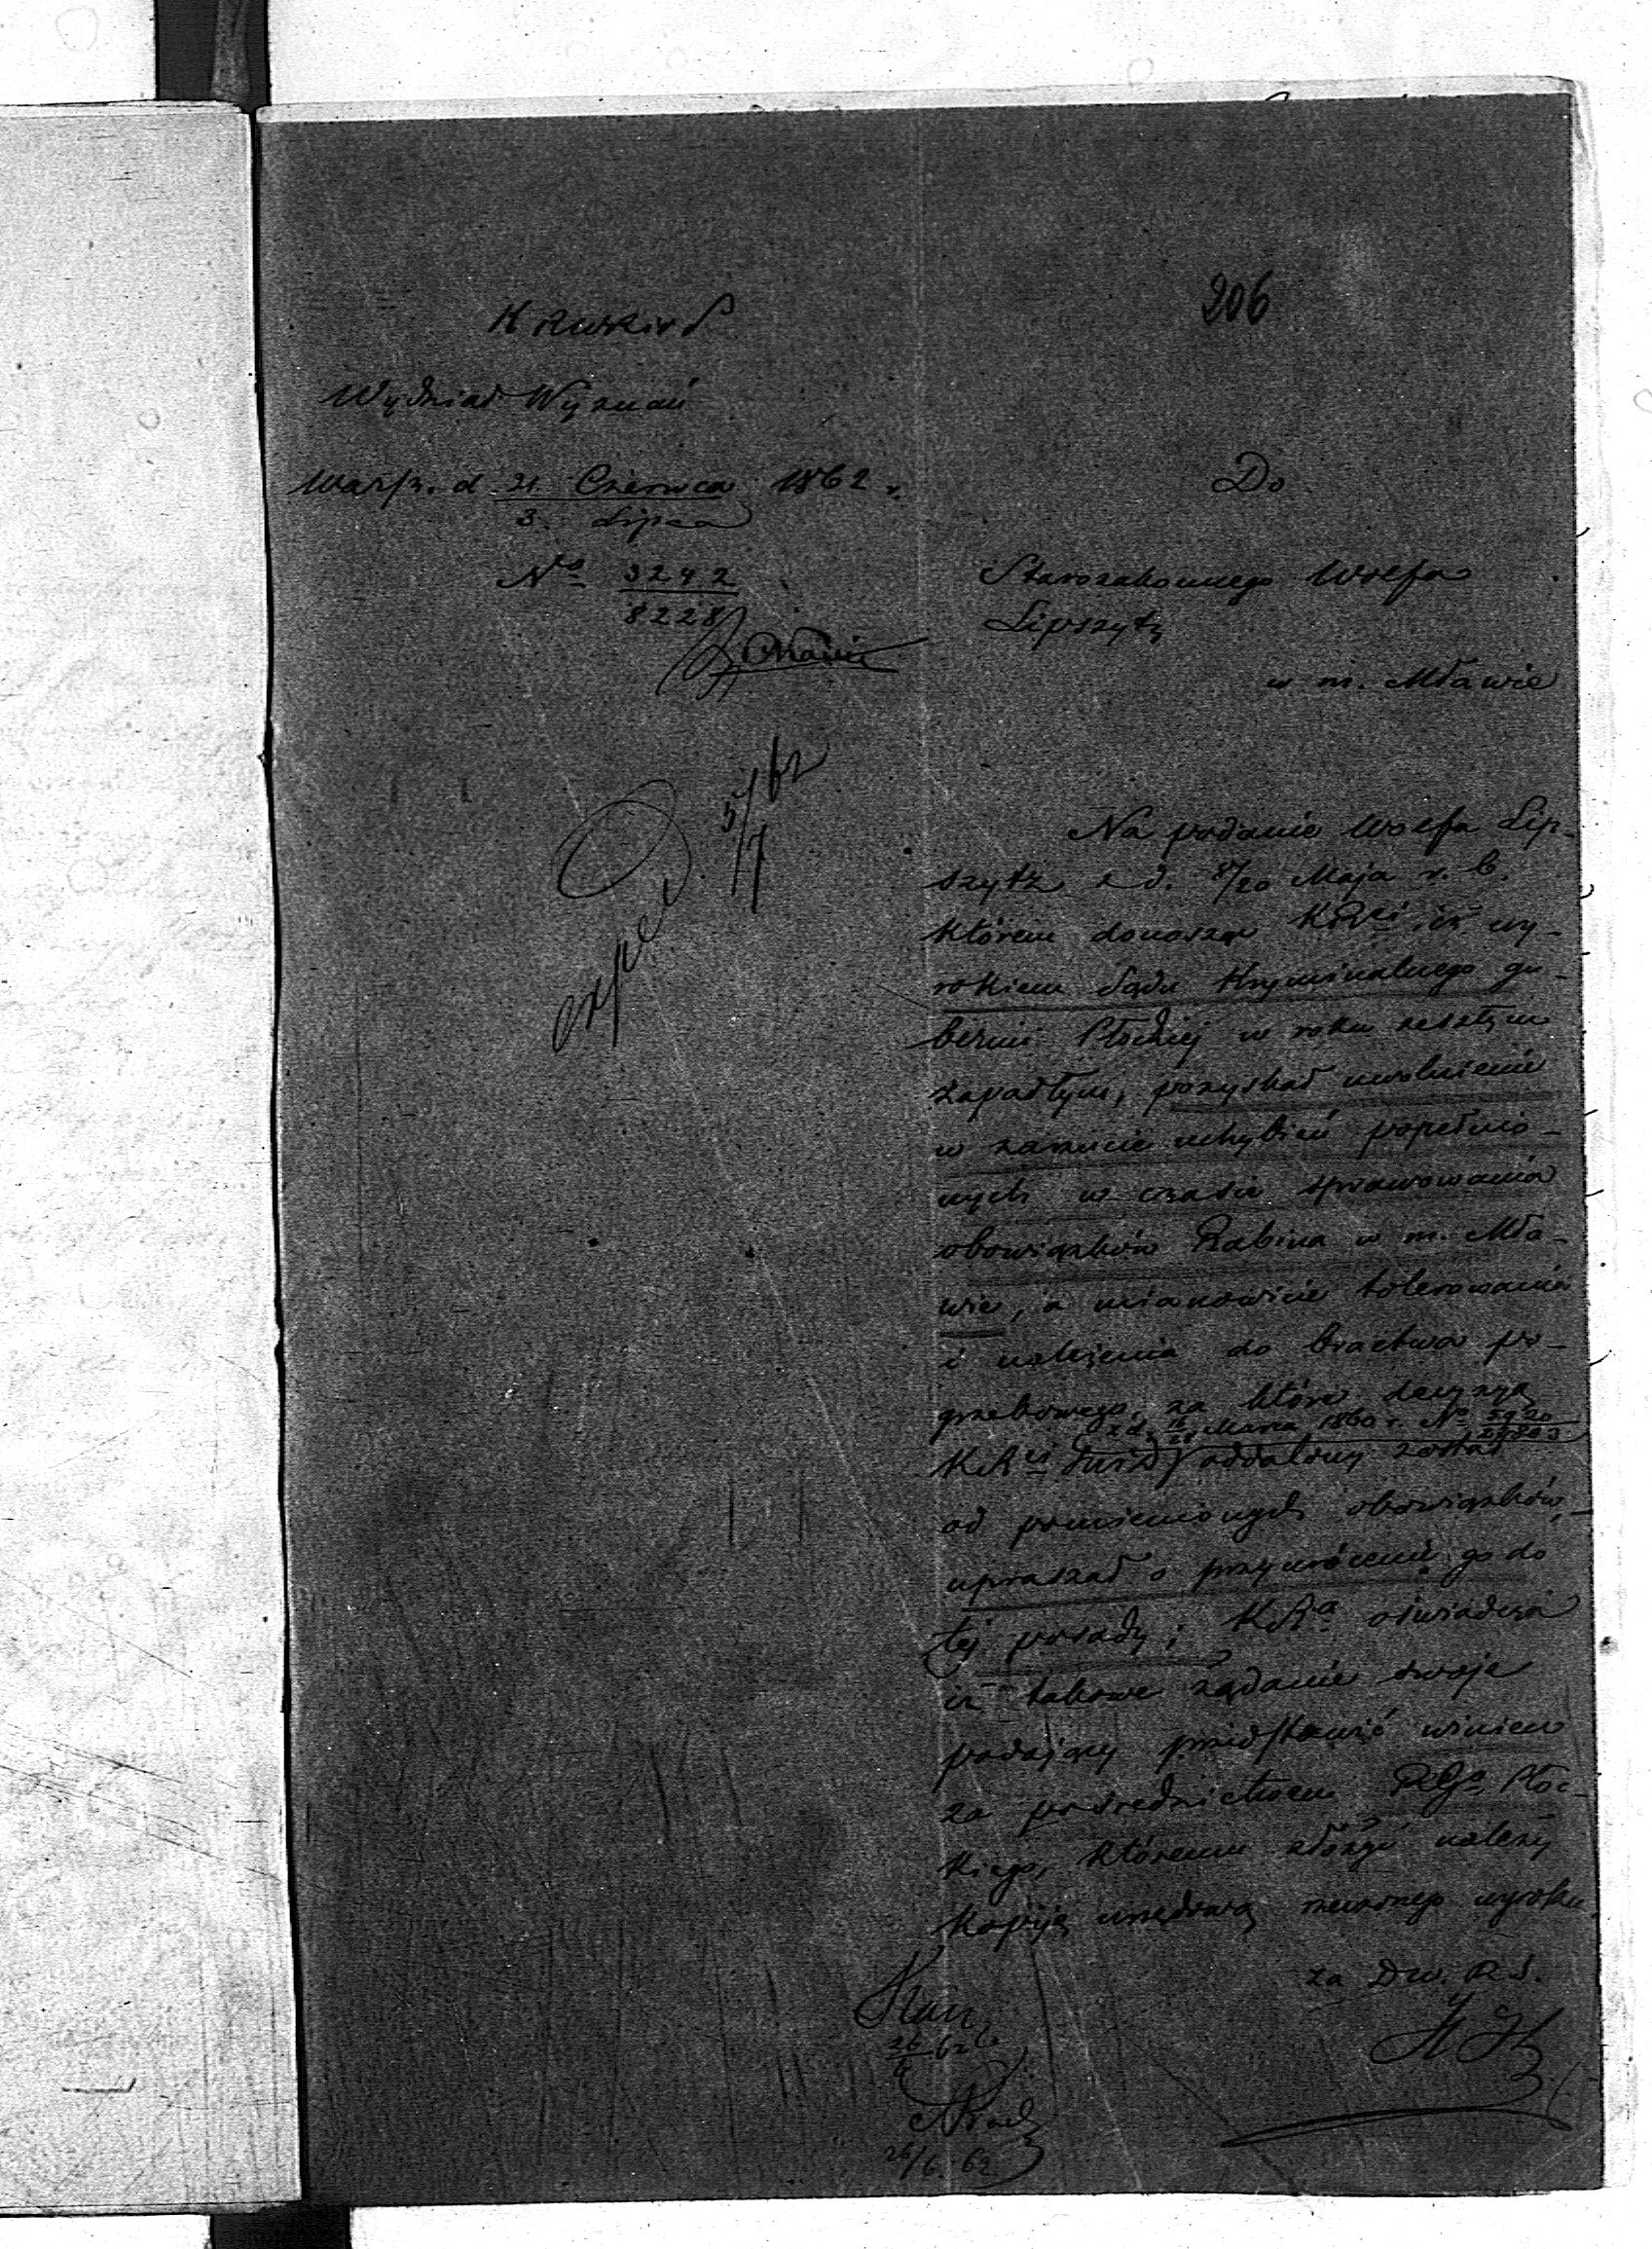 206
Wydział Wyznań
Warsz. d. 21 Czerwca 1862 r.
3 Lipca
No 3242
8228
Do
Starozakonnego Wolfa
Lipszytz
w m. Mławie
exped. 5/7 62
Na podanie Wolfa Lip-
szytz z d. 8/20 Maja r. b.
którem donosząc iż wy-
rokiem Sądu Kryminalnego gu-
berni Płockiej w roku zeszłym
zapadłym, pozyskał uwolnienie
w zarzucie uchybień popełnio-
nych w czasie sprawowania
obowiązków Rabina w m. Mła-
wie, a mianowicie tolerowania
i należenia do bractwa po-
grzebowego, za które decyzyą
z d. 16/28 Marca 1860 r. No
oddalony został
od pomienionych obowiązków,
upraszał o przywrócenie go do
tej posady; oświadcza
iż takowe żądanie swoje
podający przedstawić winien
za pośrednictwem RGo Płoc-
kiego, któremu złożyć należy
kopiję urzędową rzeczonego wyroku.
za Dyr.
26/6 62
26/6. 62